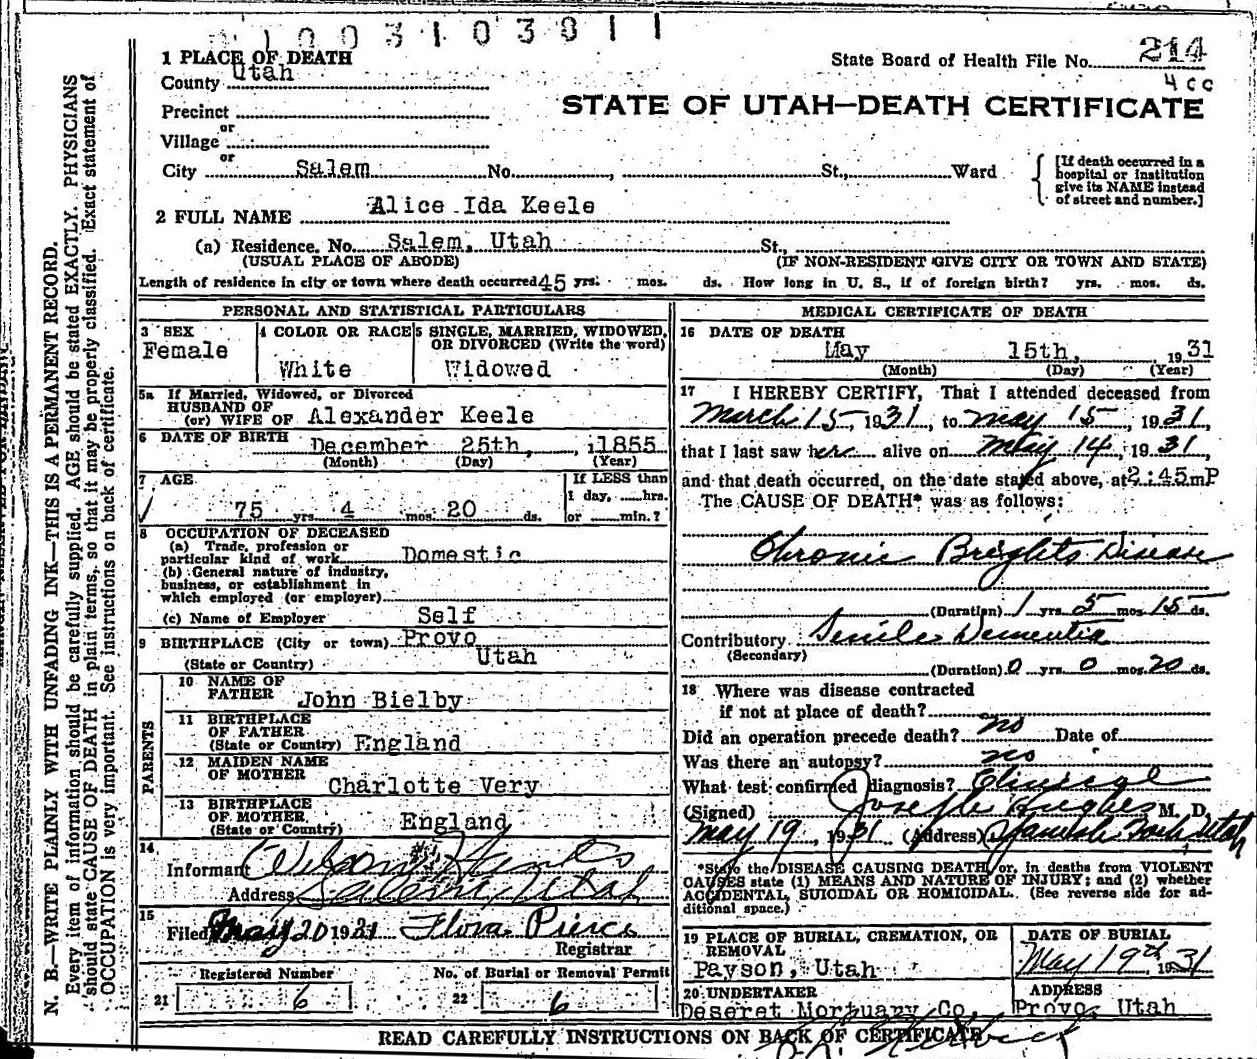 1003103811
1 PLACE OF DEATH
State Board of Health File No. 214
County Utah
4cc
STATE OF UTAH—DEATH CERTIFICATE
Precinct
or
Village
or
City Salem No. , St., Ward
[If death occurred in a hospital or institution give its NAME instead of street and number.]
2 FULL NAME Alice Ida Keele
(a) Residence. No. Salem, Utah St.,
(USUAL PLACE OF ABODE) (IF NON-RESIDENT GIVE CITY OR TOWN AND STATE)
Length of residence in city or town where death occurred 45 yrs. mos. ds. How long in U. S., if of foreign birth? yrs. mos. ds.
PERSONAL AND STATISTICAL PARTICULARS
3 SEX
Female
4 COLOR OR RACE
White
5 SINGLE, MARRIED, WIDOWED,
OR DIVORCED (Write the word)
Widowed
5a If Married, Widowed, or Divorced
HUSBAND OF
(or) WIFE OF Alexander Keele
6 DATE OF BIRTH December 25th, , 1855
(Month) (Day) (Year)
7 AGE
75 yrs 4 mos. 20 ds.
If LESS than
1 day, ......hrs.
or ......min.?
8 OCCUPATION OF DECEASED
(a) Trade, profession or
particular kind of work Domestic
(b) General nature of industry,
business, or establishment in
which employed (or employer)
(c) Name of Employer Self
9 BIRTHPLACE (City or town) Provo
(State or Country) Utah
PARENTS
10 NAME OF
FATHER John Bielby
11 BIRTHPLACE
OF FATHER
(State or Country) England
12 MAIDEN NAME
OF MOTHER Charlotte Very
13 BIRTHPLACE
OF MOTHER
(State or Country) England
14
Informant Wilson Hanks
Address Salem Utah
15
Filed May 20 1931 Flora Pierce
Registrar
Registered Number
21 6
No. of Burial or Removal Permit
22 6
MEDICAL CERTIFICATE OF DEATH
16 DATE OF DEATH
May 15th, 1931
(Month) (Day) (Year)
17 I HEREBY CERTIFY, That I attended deceased from
March 15, 1931, to May 15, 1931,
that I last saw her alive on May 14, 1931,
and that death occurred, on the date stated above, at 2:45 m P
The CAUSE OF DEATH* was as follows:
Chronic Brights Disease
(Duration) 1 yrs 5 mos 15 ds.
Contributory Senile Dementia
(Secondary)
(Duration) 0 yrs 0 mos 20 ds.
18 Where was disease contracted
if not at place of death?
Did an operation precede death? no Date of
Was there an autopsy? no
What test confirmed diagnosis? Clinical
(Signed) Joseph Hughes M. D.
May 19, 1931 (Address) Spanish Fork Utah
*State the DISEASE CAUSING DEATH, or, in deaths from VIOLENT
CAUSES state (1) MEANS AND NATURE OF INJURY; and (2) whether
ACCIDENTAL, SUICIDAL OR HOMICIDAL. (See reverse side for ad-
ditional space.)
19 PLACE OF BURIAL, CREMATION, OR
REMOVAL
Payson, Utah
DATE OF BURIAL
May 19th, 1931
20 UNDERTAKER
Deseret Mortuary Co.
ADDRESS
Provo, Utah
READ CAREFULLY INSTRUCTIONS ON BACK OF CERTIFICATE
N. B.—WRITE PLAINLY WITH UNFADING INK—THIS IS A PERMANENT RECORD.
Every item of information should be carefully supplied. AGE should be stated EXACTLY. PHYSICIANS
should state CAUSE OF DEATH in plain terms, so that it may be properly classified. Exact statement of
OCCUPATION is very important. See instructions on back of certificate.